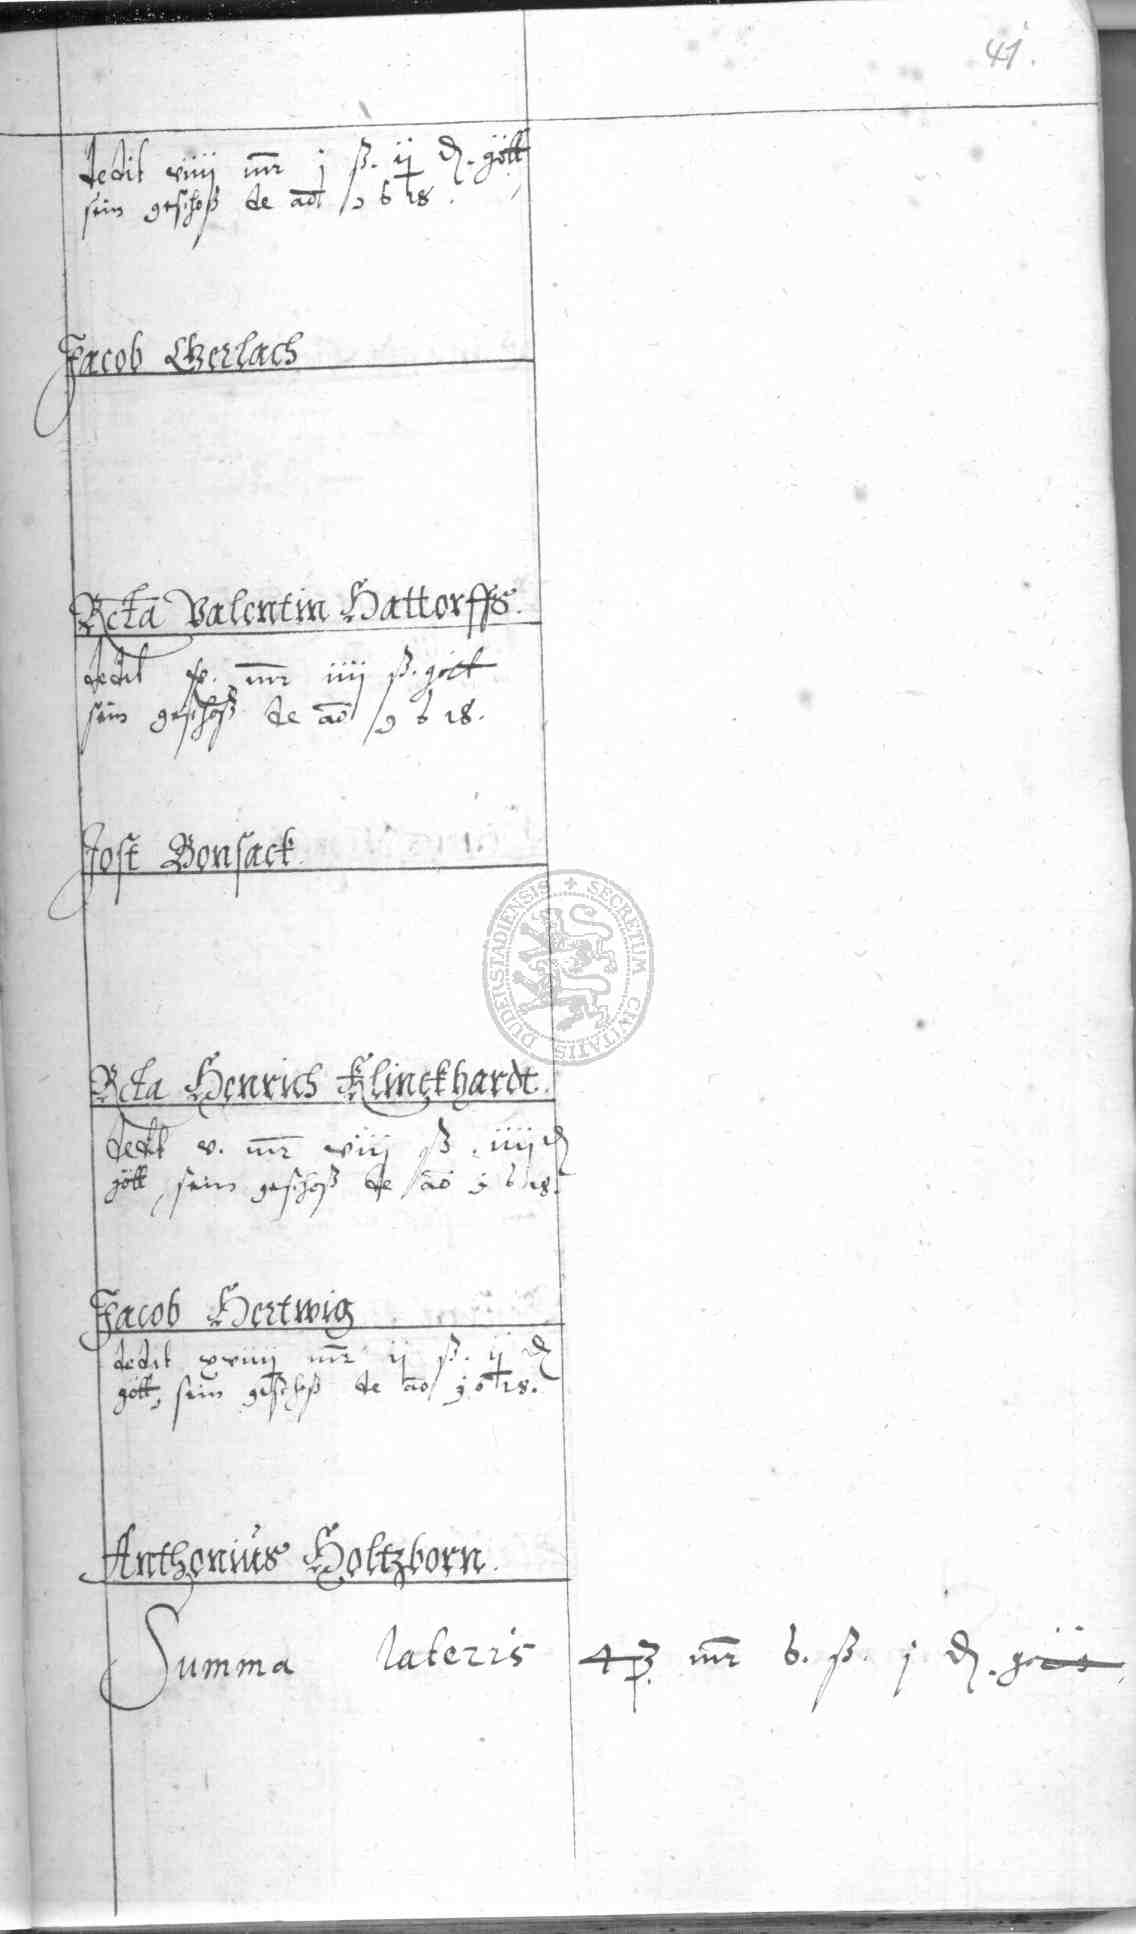 41.
dedit viiii mr j ß. ij d. gött
sein geschoß de ao 1618.
Jacob Gerlach
Rcta Valentin Hattorffs.
dedit mr iiii ß. gött
sein geschoß de ao 1618.
Jost Bonsack.
DUDERSTADIENSIS + SECRETUM CIVITATIS
Rcta Henrich Klinckhardt.
dedit v. mr viij ß. iiij d
gött, sein geschoß de ao 1618.
Jacob Hertwig
dedit xviiij mr ij ß. ij d
gött, sein geschoß de ao 1618.
Anthonius Holtzborn.
Summa lateris mr 6. ß. j d. gött